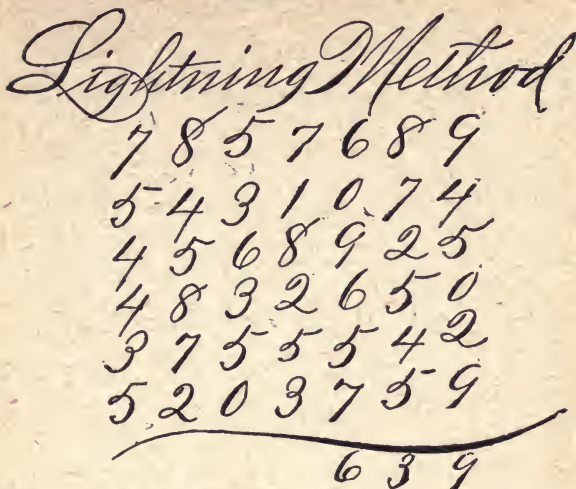 Lightning Method
7 8 5 7 6 8 9
5 4 3 1 0 7 4
4 5 6 8 9 2 5
4 8 3 2 6 5 0
3 7 5 5 5 4 2
5 2 0 3 7 5 9
6 3 9